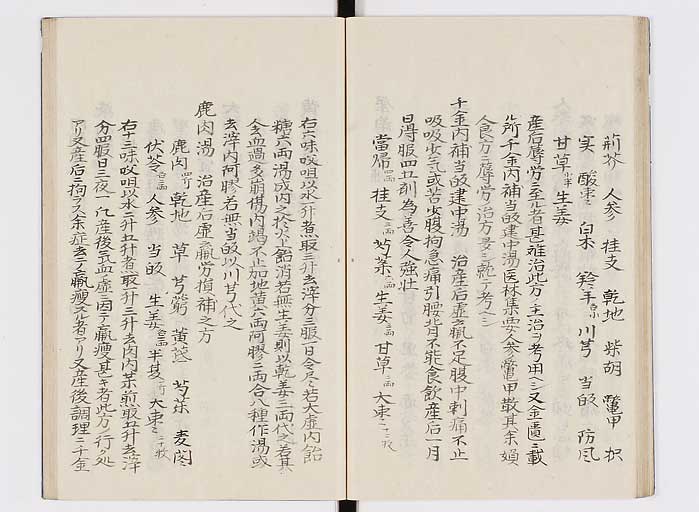 荊芥 人参 桂支 乾地 柴胡 鼈甲 枳
実 酸棗 白朮 羚羊 川芎 当皈 防風
甘草 生姜
産后辱労ニ至ル者甚難治此方ノ主治ヲ考用ヘシ又金匱ニ載
所千金内補当皈建中湯医林集要人参鼈甲散其余婦
人食方ニ辱労ノ治方多ニ就テ考ヘシ
千金内補当皈建中湯 治産后虚羸不足腹中刺痛不止
吸吸少气或苦少腹拘急痛引腰背不能食飲産后一月
日得服四五剤為善令人強壮
當帰四両 桂支三両 芍薬六両 生姜三両 甘草二両 大枣十二枚
右六味㕮咀以水一升煮取三升去滓分三服一日令尽若大虚内飴
糖六両湯成内之於火上飴消若無生姜則以乾姜三両代之若其
人去血過多崩傷内竭不止加地黄六両阿膠二両合八種作湯成
去滓内阿膠若無当皈以川芎代之
鹿肉湯 治産后虚羸労損補之方
鹿肉四斤 乾地 草 芎藭 黄芪 芍薬 麦門
伏苓 人参 当皈 生姜 半夏 大枣二十枚
右十三味㕮咀以水二升五升煮取升三升去肉内薬煎取五升去滓
分四服日三夜一凡産後气血ノ虚ニ因テ羸瘦甚キ者此方ノ行ク処
アリ又産后ニ拘ラス余症去テ羸瘦スル者アリ又産後調理ニ千金